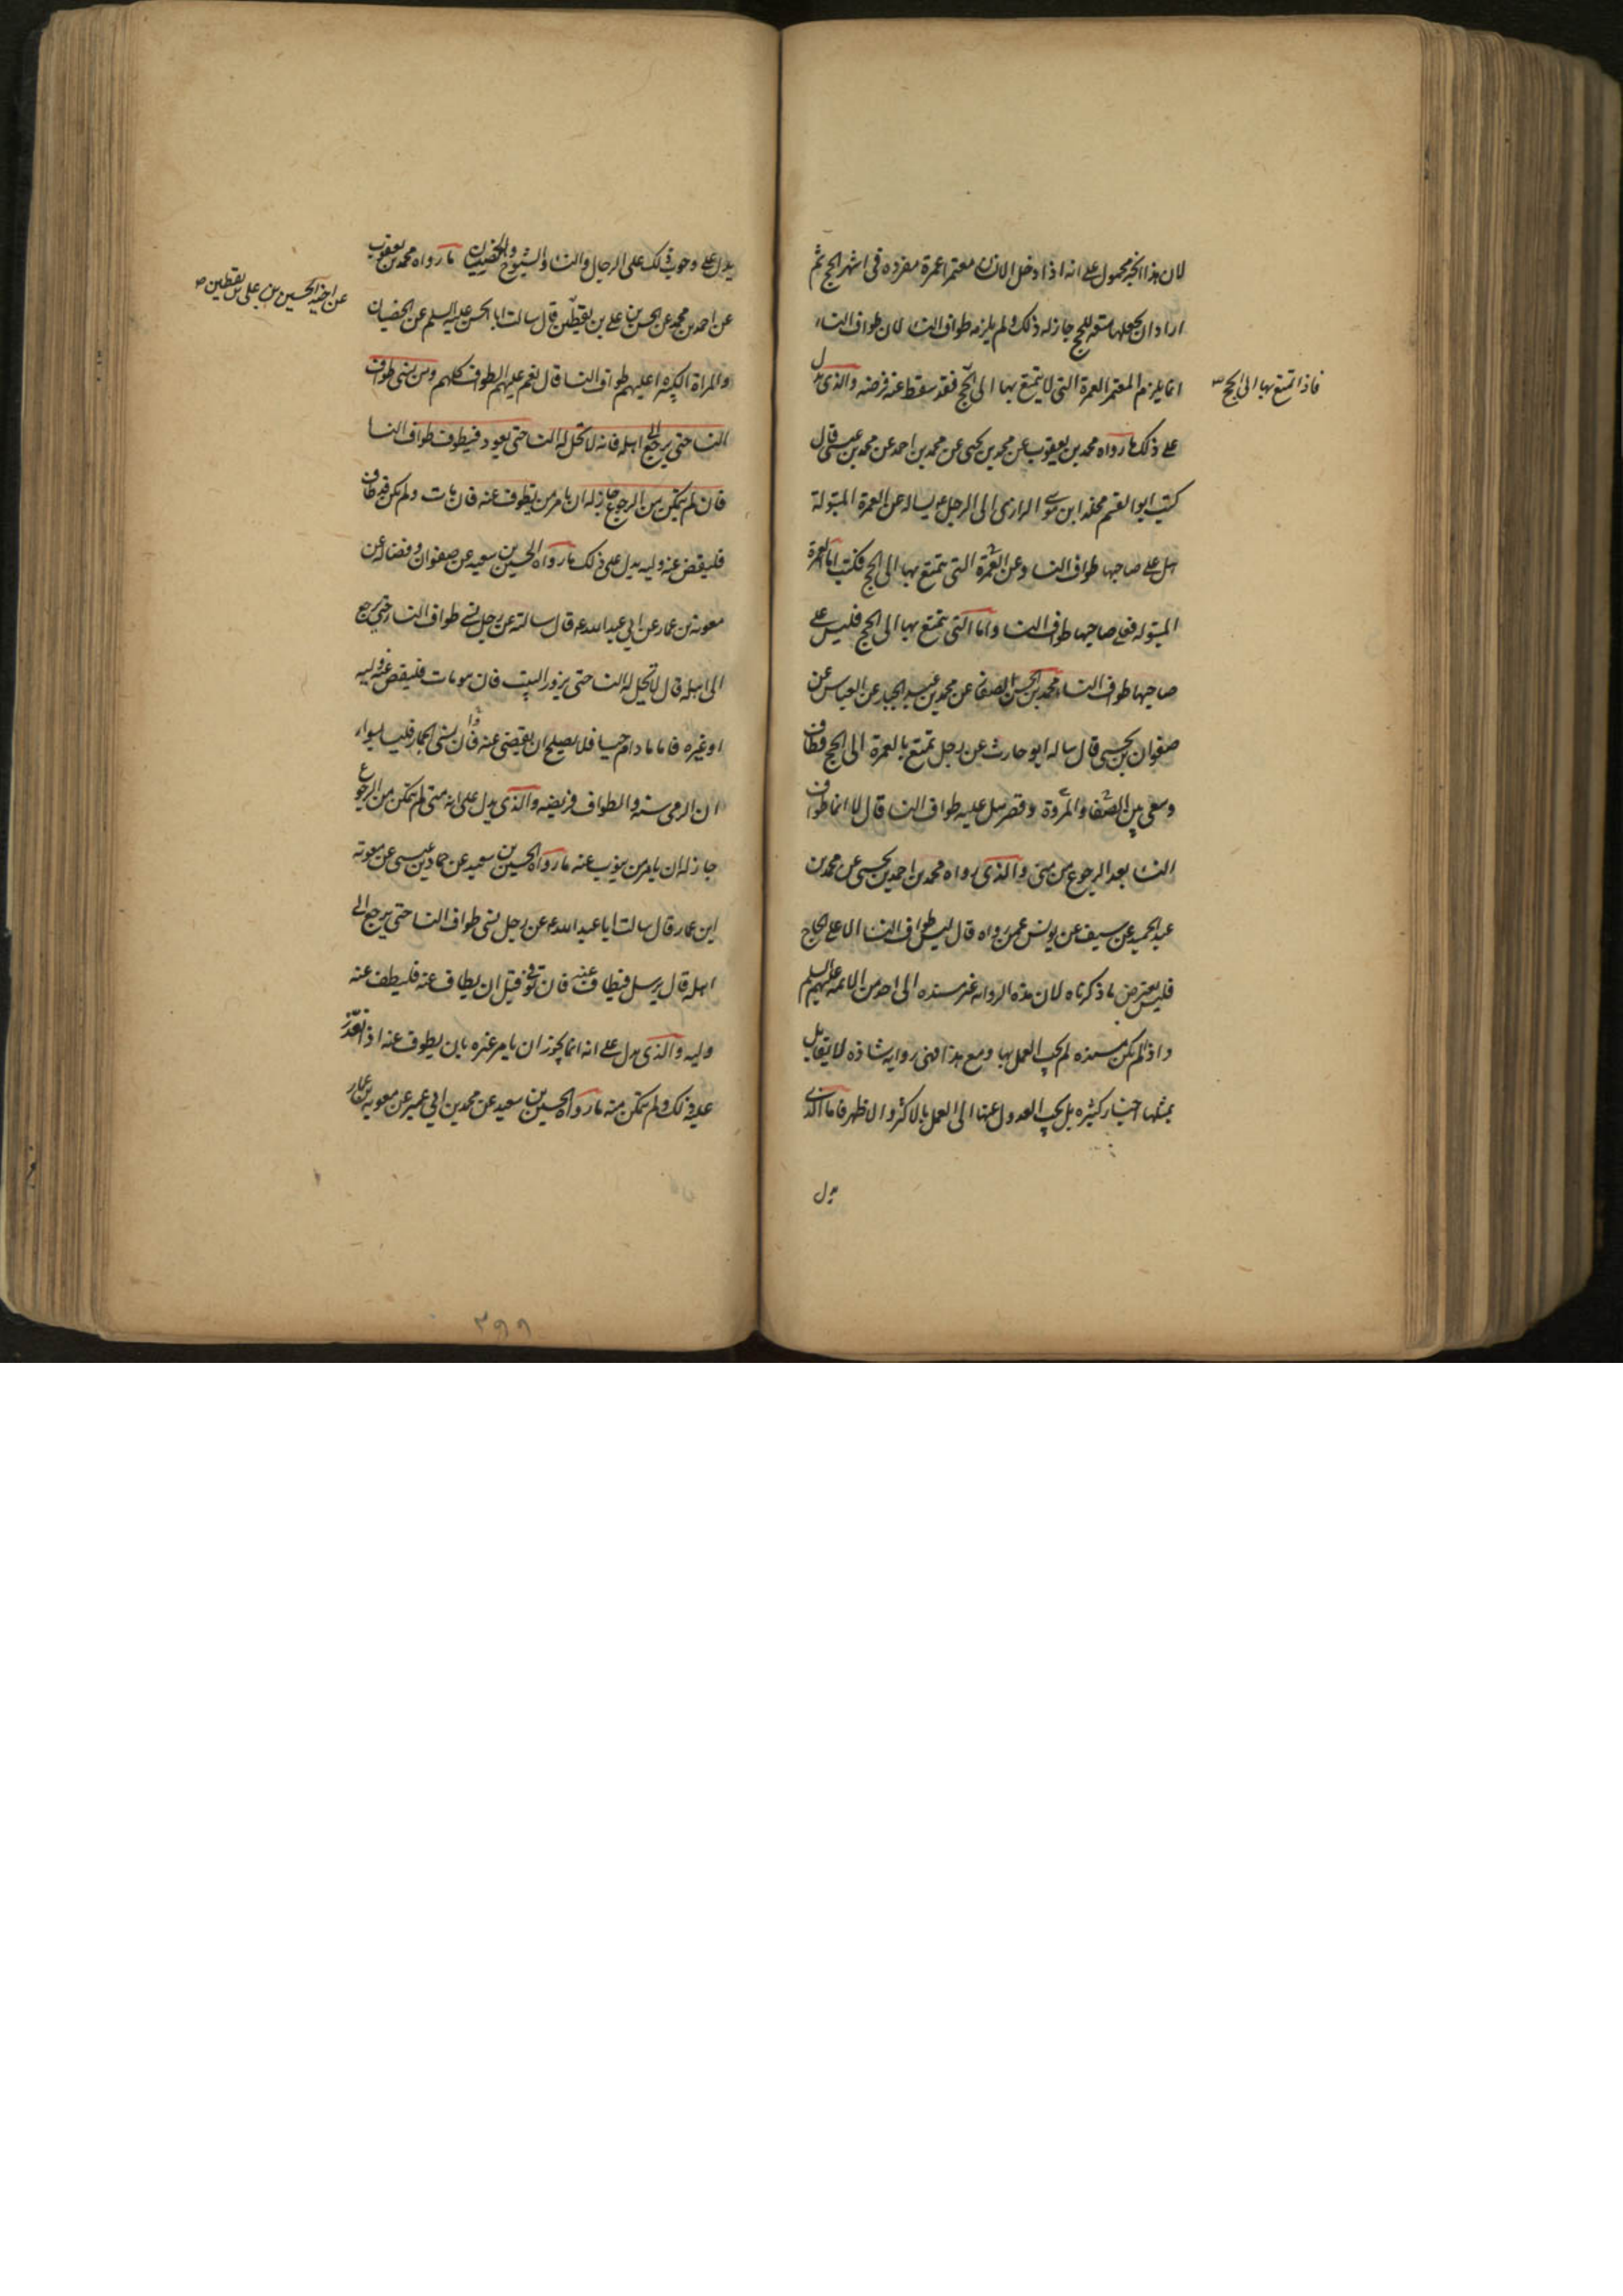 لان هذا الخبر محمول على انه اذا دخل الانسان معتمرا عمرة مفردة فى اشهر الحج ثم
اراد ان يجعلها متعة للحج جاز له ذلك ولم يلزمه طواف النساء لان طواف النساء
انما يلزم المعتمر العمرة التى لا يتمتع بها الى الحج فقد سقط عنه فرضه والذى يدل
فاذا تمتع بها الى الحج صح
على ذلك ما رواه محمد بن يعقوب عن محمد بن يحيى عن محمد بن احمد عن محمد بن عيسى قال
كتب ابو القسم مخلد ابن موسى الرازى الى الرجل ع يساله عن العمرة المبتولة
هل على صاحبها طواف النسا وعن العمرة التى يتمتع بها الى الحج فكتب اما العمرة
المبتوله فعلى صاحبها طواف النسا واما التى يتمتع بها الى الحج فليس على
صاحبها طواف النساء محمد بن الحسن الصفار عن محمد بن عبد الجبار عن العباس عن
صفوان بن يحيى قال ساله ابو حارث عن رجل تمتع بالعمرة الى الحج فطاف
وسعى بين الصفا والمروة وقصر هل عليه طواف النسا قال لا انما طواف
النسا بعد الرجوع من منى والذى رواه محمد بن احمد بن يحيى عن محمد بن
عبد الحميد عن سيف عن يونس عمن رواه قال ليس طواف النسا الا على الحاج
فليس يعترض ما ذكرناه لان هذه الروايه غير مسنده الى احد من الائمه عليهم السلم
واذا لم يكن مسنده لم يجب العمل بها ومع هذا فهى روايه شاذه لا يقابل
بمثلها اخبار كثيره بل يجب العدول عنها الى العمل بالاكثر والاظهر فاما الذى
يدل
يدل على وجوب ذلك على الرجال والنسا والشيوخ والخصيان ما رواه محمد بن يعقوب
عن احمد بن محمد عن الحسن بن على بن يقطين قال سالت ابا الحسن عليه السلم عن الخصيان
عن اخيه الحسين بن على بن يقطين صح
والمراة الكبيره اعليهم طواف النسا قال نعم عليهم الطواف كلهم ومن نسى طواف
النسا حتى يرجع الى اهله فانه لا تحل له النسا حتى يعود فيطوف طواف النسا
فان لم يتمكن من الرجوع جاز له ان يامر من يطوف عنه فان مات ولم يكن قد طاف
فليقض عنه وليه يدل على ذلك ما رواه الحسين بن سعيد عن صفوان وفضاله عن
معويه بن عمار عن ابى عبد الله ع قال سالته عن رجل نسى طواف النسا حتى يرجع
الى اهله قال لا تحل له النسا حتى يزور البيت فان هو مات فليقض عنه وليه
او غيره فاما ما دام حيا فلا يصلح ان يقضى عنه فان نسى الجمار فليسا بسواء
ان الرمى سنه والطواف فريضه والذى يدل على انه متى لم يتمكن من الرجوع
جاز له ان يامر من ينوب عنه ما رواه الحسين بن سعيد عن حماد بن عيسى عن معويه
ابن عمار قال سالت ابا عبد الله ع عن رجل نسى طواف النسا حتى يرجع الى
اهله قال يرسل فيطاف عنه فان توفى قبل ان يطاف عنه فليطف عنه
وليه والذى يدل على انه انما يجوز ان يامر غيره بان يطوف عنه اذا تعذر
عليه ذلك ولم يتمكن منه ما رواه الحسين بن سعيد عن محمد بن ابى عمير عن معويه بن عمار
۳۹۹